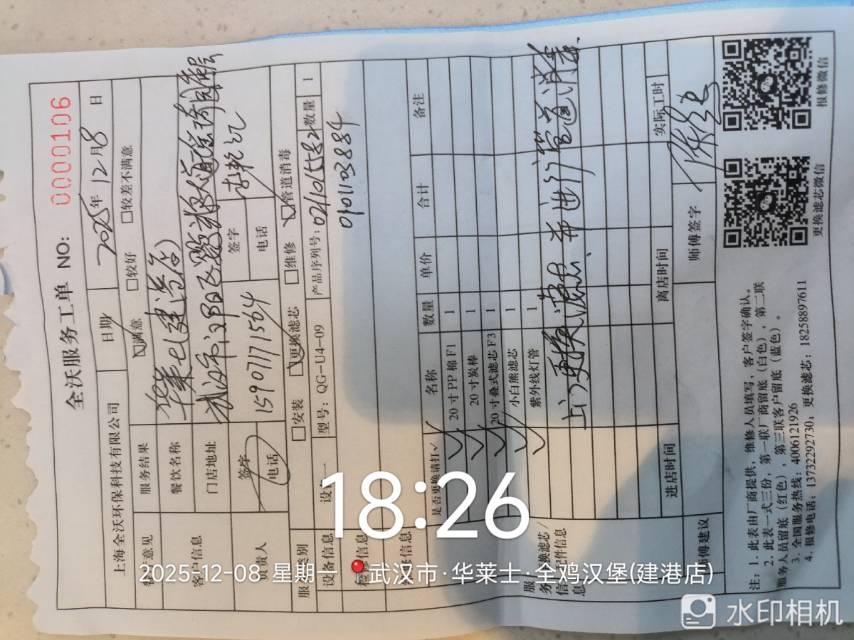 全沃服务工单 NO: 0000106
上海全沃环保科技有限公司 日期 2025年12月8日
服务结果 满意 □较好 □较差不满意
餐饮名称 华莱士(建港店)
门店地址 武汉市汉阳区
签字
电话 15907771564
签字
电话
服务类别 □安装 更换滤芯 □维修 管道消毒
设备信息 型号: QG-U4-09 产品序列号: 0210155820 数量 1
0101103884
是否更换请打√ 名称 数量 单价 合计 备注
√ 20寸PP棉F1 1
√ 20寸炭棒 1
√ 20寸叠式滤芯F3 1
√ 小白熊滤芯 1
√ 紫外线灯管 1
上门更换滤芯并进行管道消毒.
进店时间 离店时间 实际工时
师傅建议 师傅签字
注: 1. 此表由厂商提供, 维修人员填写, 客户签字确认。
2. 此表一式三份, 第一联厂商留底(白色), 第二联
服务人员留底(红色), 第三联客户留底(蓝色)。
3. 全国服务热线: 4006121926
4. 报修电话: 13732292730, 更换滤芯: 18258897611
更换滤芯微信 报修微信
18:26
2025-12-08 星期一 武汉市·华莱士·全鸡汉堡(建港店)
水印相机